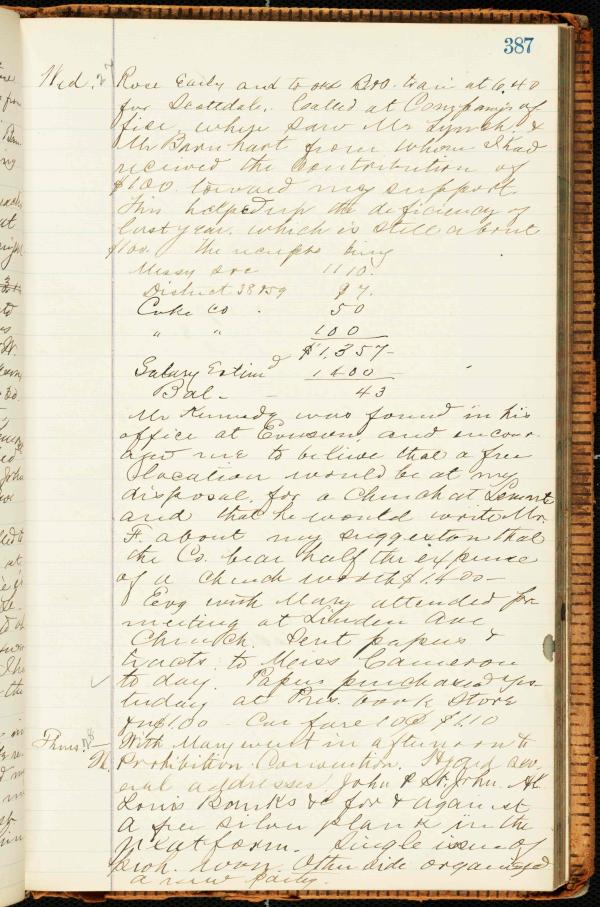 387
Wed. 27 Rose Early and took B&O. train at 6,40
for Scottdale. Called at Company's of
fice, where saw Mr Lynch. &
Mr Barnhart from whom I had
received the contribution of
$100 toward my support
This helped up the deficiency of
last year. which is still about
$100. The receipts being
Missy Soc 1110.
District 38 & 59 97.
Coke Co. 50
" " 100
$1,357-
Salary Estimd 1400
Bal- 43
Mr Kennedy was found in his
office at Everson, and encour-
aged me to believe that a free
location would be at my
disposal, for a Church at Lemont
and that he would write Mr.
F. about my suggestion that
the Co. bear half the expense
of a church worth $1400-
Evg with Mary attended for
meeting at Linden Ave
Church. Sent papers &
tracts to Miss Cameron
to day. Papers purchased yes
terday at Pres. book Store
for $1.00 - Car fare 10c $1.10
Thurs. 28 With Mary went in afternoon to
Prohibition Convention. Heard sev
eral addresses John P. St. John.
Louis Banks &c for & against
a free silver plank in the
platform. Single issue of
proh. won. Other side organized
a new party.